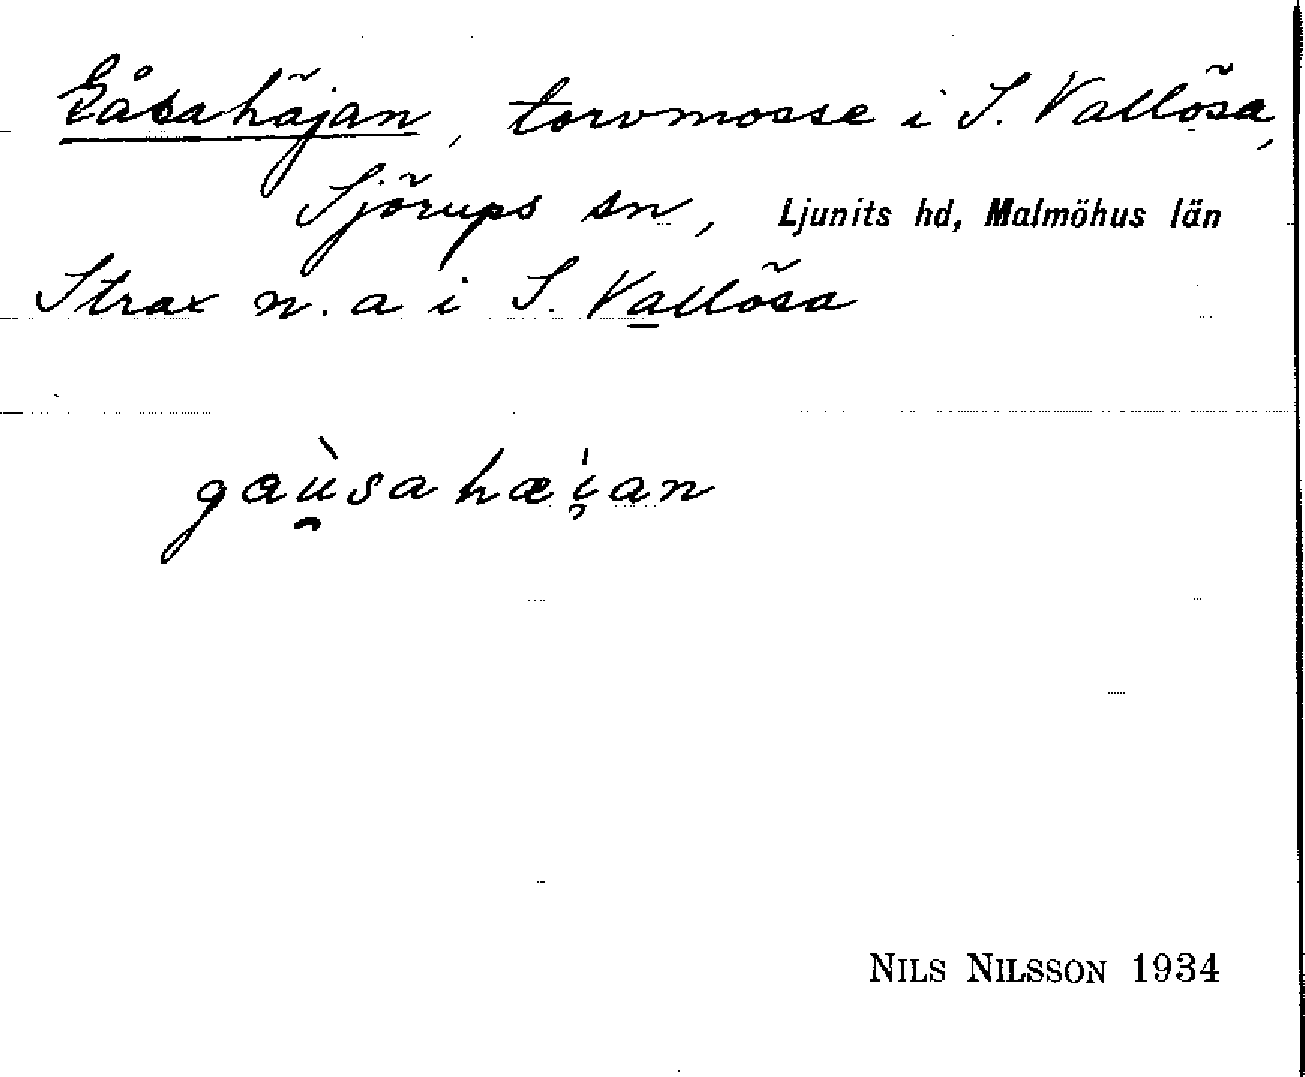 Gåsahäjan, torvmosse i S. Vallösa,
Sjörups sn, Ljunits hd, Malmöhus län
Strax n. a i S. Vallösa
gaù̯sahæi̯̍an
NILS NILSSON 1934